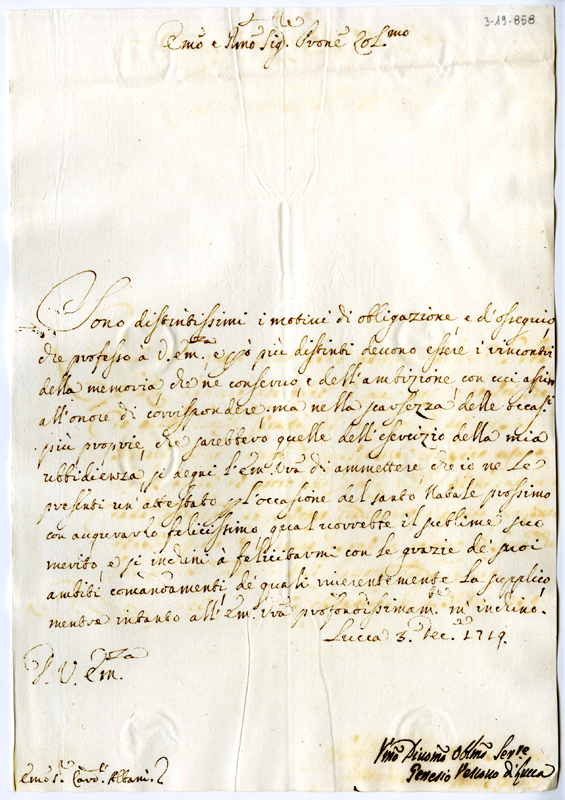 3-19-858
Em.o e R.mo Sig.r Prone Col.mo
Sono distintissimi i motivi di obligazione, e d'ossequio
che professo a V. Em.za, e p̄ò più distinti devono essere i rincontri
della memoria che ne conservo, e dell'ambizione con cui aspiro
all'onore di corrispondere, mà nella scarsezza delle occas.i
più proprie, che sarebbero quelle dell'esercizio della mia
ubbidienza, si degni l'Em. Vra di ammettere che io ne Le
presenti un'attestato p l'occasione del santo Natale prossimo
con augurarlo felicissimo qual vorrebbe il sublime suo
merito, e si inchini à felicitarmi con le grazie de' suoi
ambiti comandamenti, de quali riverentemente La supplico
mentre intanto all'Em. Vra profondissimam.te m'inchino.
Lucca 3. Dec.re 1719.
D. V. Em.za
Em.o S.r Card. Albani
Um.o Divmo Obmo Ser.re
Genesio Vescovo di Lucca